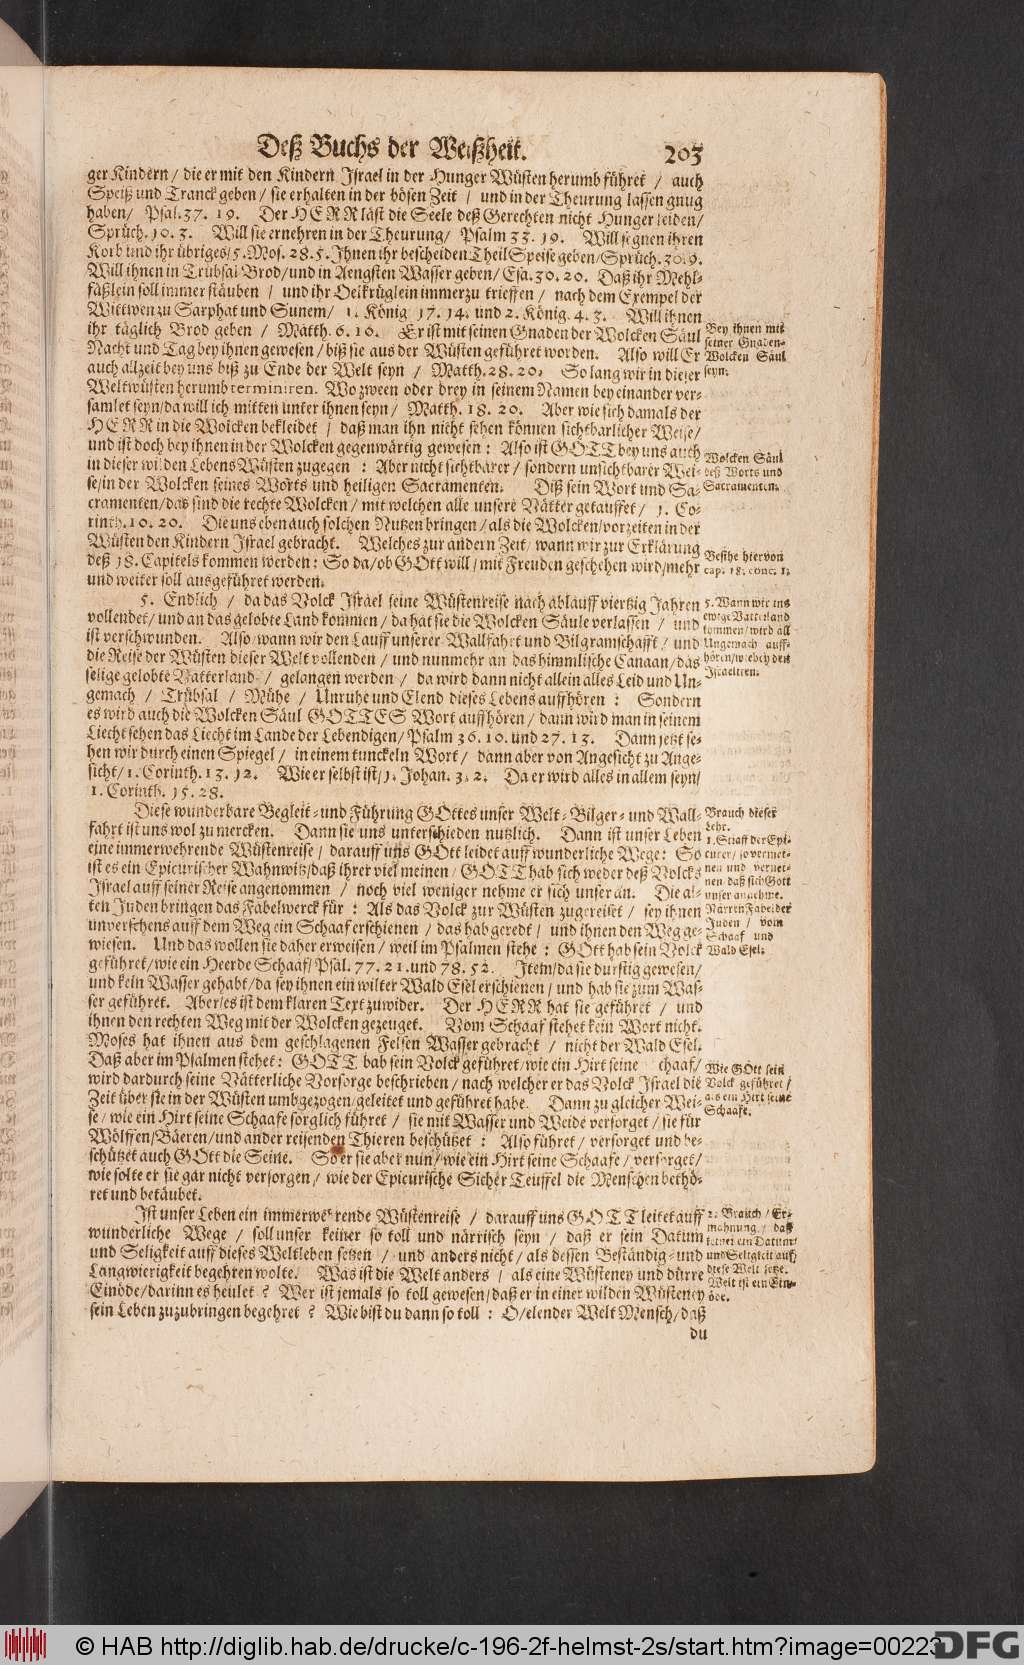 Deß Buchs der Weißheit. 203
ger Kindern / die er mit den Kindern Israel in der Hunger Wüsten herumb führet / auch
Speiß und Tranck geben / sie erhalten in der bösen Zeit / und in der Theurung lassen gnug
haben / Psal. 37. 19. Der HERR läst die Seele deß Gerechten nicht Hunger leiden /
Sprüch. 10. 3. Will sie ernehren in der Theurung / Psalm 33. 19. Will segnen ihren
Korb und ihr übriges / 5. Mos. 28. 5. Ihnen ihr bescheiden Theil Speise geben / Sprüch. 30. 9.
Will ihnen in Trübsal Brod / und in Aengsten Wasser geben / Esa. 30. 20. Daß ihr Mehl-
fäßlein soll immer stäuben / und ihr Oelkrüglein immerzu trieffen / nach dem Exempel der
Wittwen zu Sarphat und Sunem / 1. König 17. 14. und 2. König. 4. 3. Will ihnen
ihr täglich Brod geben / Matth. 6. 10. Er ist mit seinen Gnaden der Wolcken Säul
Nacht und Tag bey ihnen gewesen / biß sie aus der Wüsten geführet worden. Also will Er
auch allzeit bey uns biß zu Ende der Welt seyn / Matth. 28. 20. So lang wir in dieser
Weltwüsten herumb terminiren. Wo zween oder drey in seinem Namen bey einander ver-
samlet seyn / da will ich mitten unter ihnen seyn / Matth. 18. 20. Aber wie sich damals der
HERR in die Wolcken bekleidet / daß man ihn nicht sehen können sichtbarlicher Weise /
und ist doch bey ihnen in der Wolcken gegenwärtig gewesen : Also ist GOTT bey uns auch
in dieser wilden Lebens Wüsten zugegen : Aber nicht sichtbarer / sondern unsichtbarer Wei-
se / in der Wolcken seines Worts und heiligen Sacramenten. Diß sein Wort und Sa-
cramenten / das sind die rechte Wolcken / mit welchen alle unsere Vätter getauffet / 1. Co-
rinth. 10. 20. Die uns eben auch solchen Nutzen bringen / als die Wolcken / vorzeiten in der
Wüsten den Kindern Israel gebracht. Welches zur andern Zeit / wann wir zur Erklärung
deß 18. Capitels kommen werden : So da / ob GOtt will / mit Freuden geschehen wird / mehr
und weiter soll ausgeführet werden.
Bey ihnen mit
seiner Gnaden-
Wolcken Säul
seyn.
Wolcken Säul
deß Worts und
Sacramenten.
Besihe hiervon
cap. 18. conc. 1.
5. Endlich / da das Volck Israel seine Wüstenreise nach ablauff viertzig Jahren
vollendet / und an das gelobte Land kommen / da hat sie die Wolcken Säule verlassen / und
ist verschwunden. Also / wann wir den Lauff unserer Wallfahrt und Bilgramschafft / und
die Reise der Wüsten dieser Welt vollenden / und nunmehr an das himmlische Canaan / das
selige gelobte Vatterland / gelangen werden / da wird dann nicht allein alles Leid und Un-
gemach / Trübsal / Mühe / Unruhe und Elend dieses Lebens auffhören : Sondern
es wird auch die Wolcken Säul GOTTES Wort auffhören / dann wird man in seinem
Liecht sehen das Liecht im Lande der Lebendigen / Psalm 36. 10. und 27. 13. Dann jetzt se-
hen wir durch einen Spiegel / in einem tunckeln Wort / dann aber von Angesicht zu Ange-
sicht / 1. Corinth. 13. 12. Wie er selbst ist / 1. Johan. 3. 2. Da er wird alles in allem seyn /
1. Corinth. 15. 28.
5. Wann wir ins
ewige Vatterland
kommen / wird all
Ungemach auff-
hören / wie bey den
Israeliten.
Diese wunderbare Begleit- und Führung GOttes unser Welt- Bilger- und Wall-
fahrt ist uns wol zu mercken. Dann sie uns unterschieden nutzlich. Dann ist unser Leben
eine immerwehrende Wüstenreise / darauff uns GOtt leidet auff wunderliche Wege : So
ist es ein Epicurischer Wahnwitz / daß ihrer viel meinen / GOTT hab sich weder deß Volcks
Israel auff seiner Reise angenommen / noch viel weniger nehme er sich unser an. Die al-
ten Juden bringen das Fabelwerck für : Als das Volck zur Wüsten zugereiset / sey ihnen
unversehens auff dem Weg ein Schaaf erschienen / das hab geredt / und ihnen den Weg ge-
wiesen. Und das wollen sie daher erweisen / weil im Psalmen stehe : GOtt hab sein Volck
geführet / wie ein Heerde Schaaf / Psal. 77. 21. und 78. 52. Item / da sie durstig gewesen /
und kein Wasser gehabt / da sey ihnen ein wilter Wald Esel erschienen / und hab sie zum Was-
ser geführet. Aber / es ist dem klaren Text zuwider. Der HERR hat sie geführet / und
ihnen den rechten Weg mit der Wolcken gezeuget. Vom Schaaf stehet kein Wort nicht.
Moses hat ihnen aus dem geschlagenen Felsen Wasser gebracht / nicht der Wald Esel.
Daß aber im Psalmen stehet : GOTT hab sein Volck geführet / wie ein Hirt seine chaaf /
wird dardurch seine Vätterliche Vorsorge beschrieben / nach welcher er das Volck Israel die
Zeit über sie in der Wüsten umbgezogen / geleitet und geführet habe. Dann zu gleicher Wei-
se / wie ein Hirt seine Schaafe sorglich führet / sie mit Wasser und Weide versorget / sie für
Wölffen / Bäeren / und ander reisenden Thieren beschützet : Also führet / versorget und be-
schützet auch GOtt die Seine. So er sie aber nun / wie ein Hirt seine Schaafe / versorget /
wie solte er sie gar nicht versorgen / wie der Epicurische Sicher Teuffel die Menschen bethö-
ret und betäubet.
Brauch dieser
Lehr.
1. Straff der Epi-
curer / so vermei-
nen und vernei-
nen daß sich Gott
unser annehme.
Narren Fabel der
Juden / vom
Schaaf und
Wald Esel.
Wie GOtt sein
Volck geführet /
als ein Hirt seine
Schaafe.
Ist unser Leben ein immerwehrende Wüstenreise / darauff uns GOTT leitet auff
wunderliche Wege / soll unser keiner so toll und närrisch seyn / daß er sein Datum
und Seligkeit auff dieses Weltleben setzen / und anders nicht / als dessen Beständig- und
Langwierigkeit begehren wolte. Was ist die Welt anders / als eine Wüsteney und dürre
Einöde / darinn es heulet ? Wer ist jemals so toll gewesen / daß er in einer wilden Wüsteney
sein Leben zuzubringen begehret ? Wie bist du dann so toll : O / elender Welt Mensch / daß
du
2. Brauch / Er-
mahnung / daß
keiner ein Datum
und Seligkeit auf
diese Welt setze.
Welt ist ein Ein-
öde.
© HAB http://diglib.hab.de/drucke/c-196-2f-helmst-2s/start.htm?image=00223
DFG